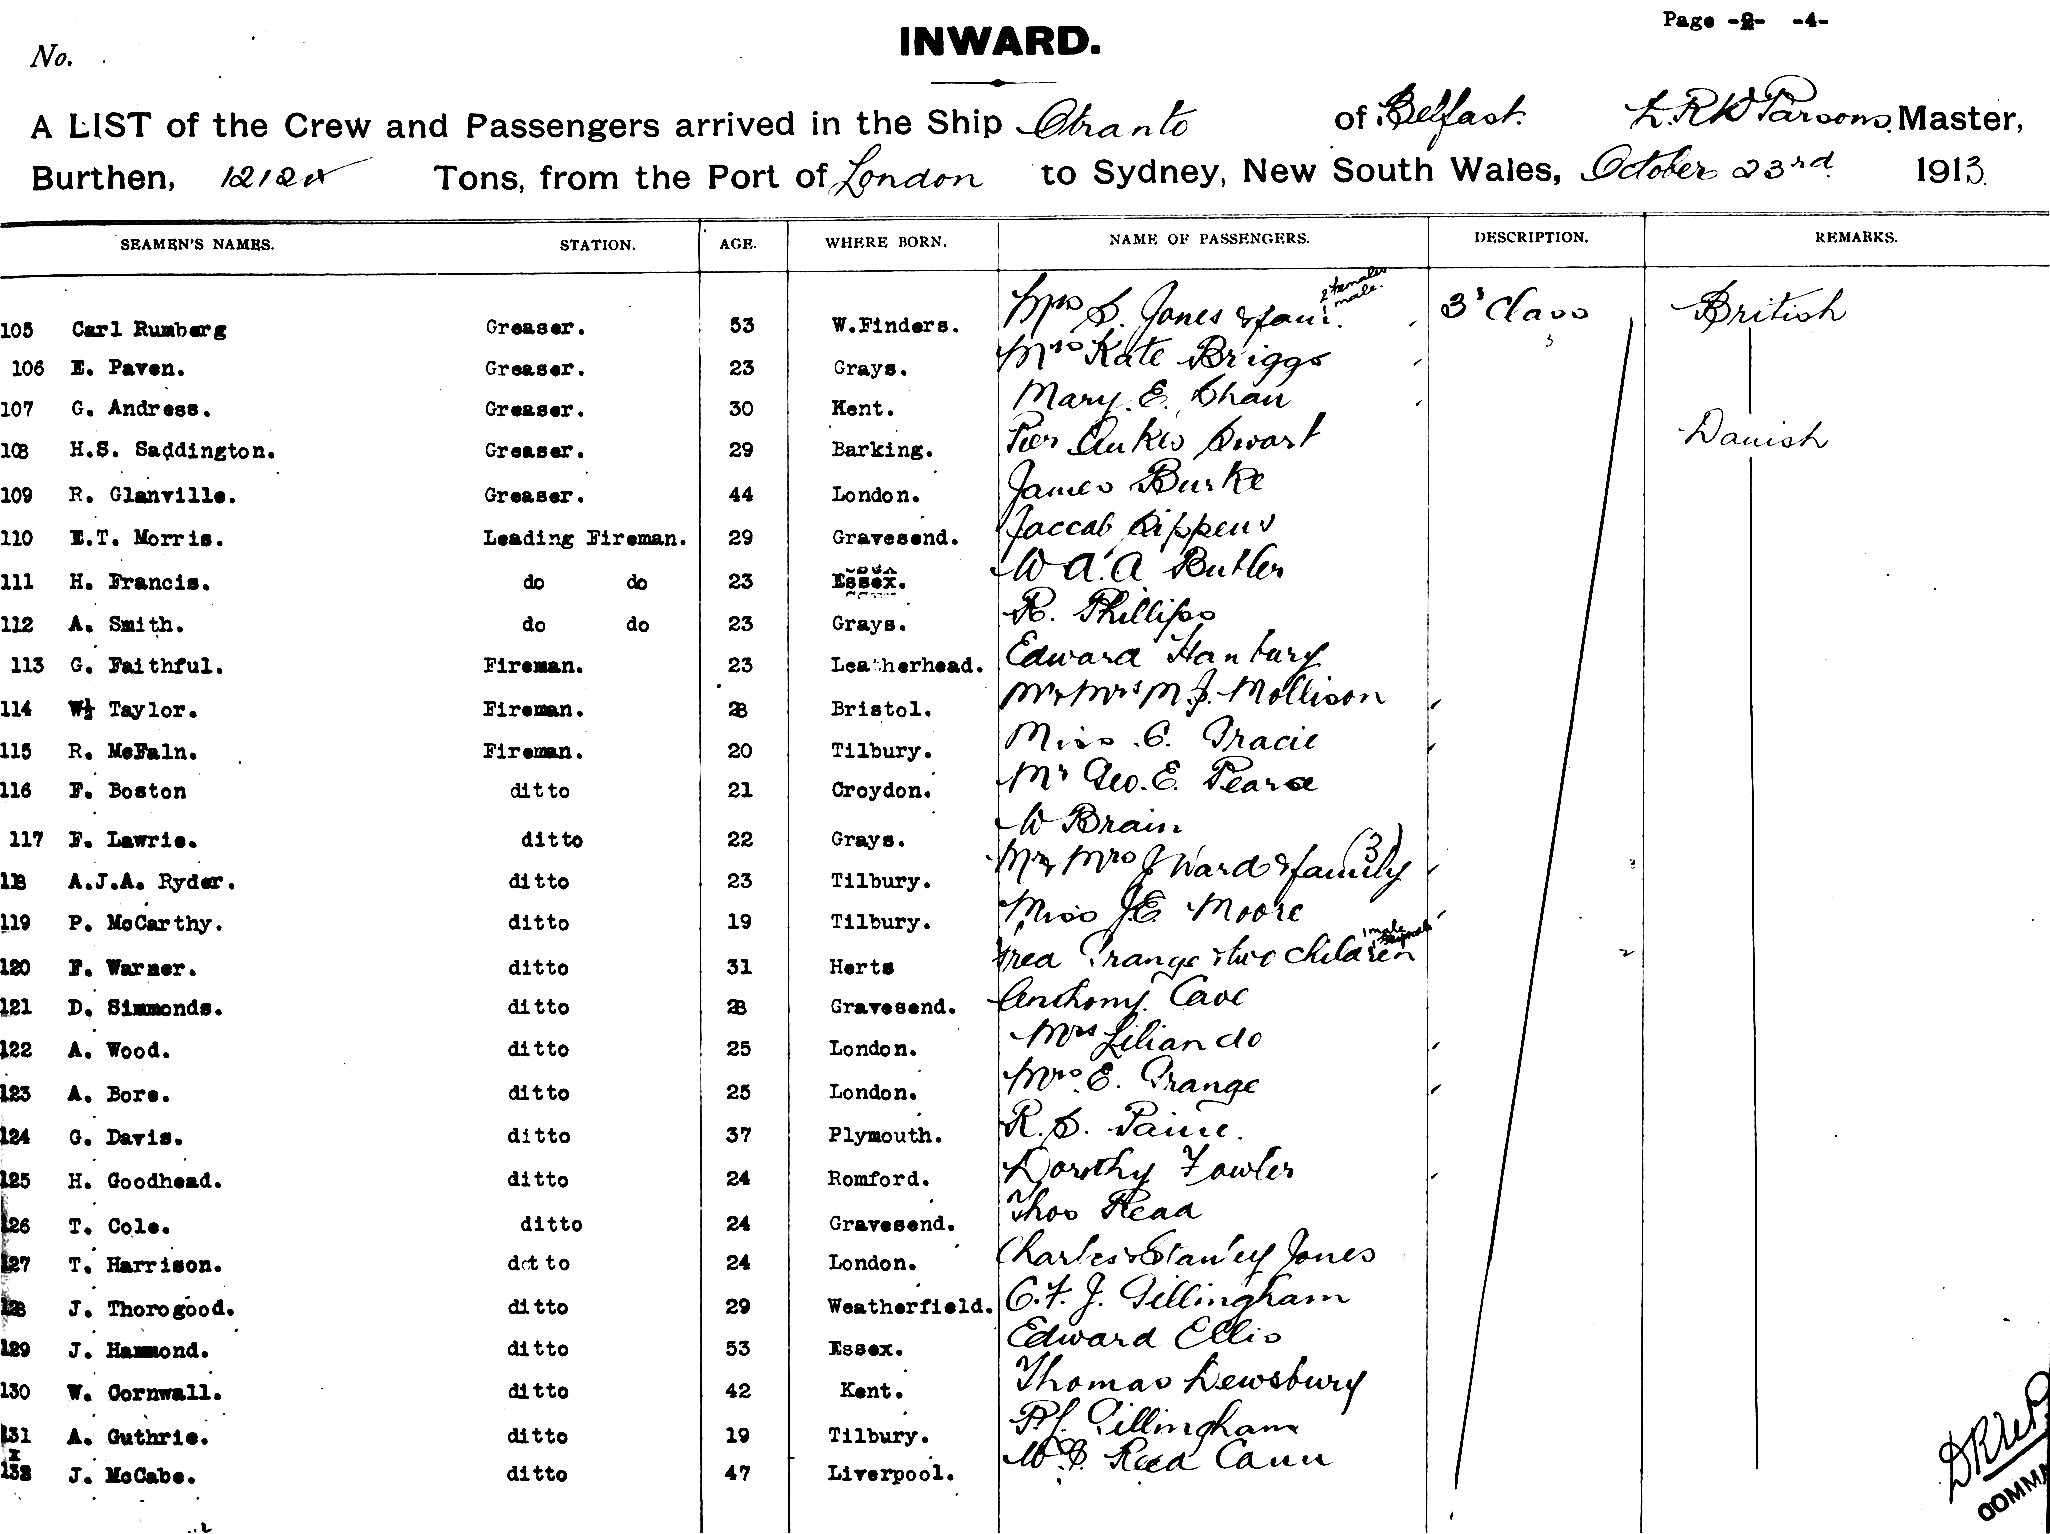 Page -2- -4-
No.
INWARD.
A LIST of the Crew and Passengers arrived in the Ship Otranto of Belfast. L.R.W Parsons. Master,
Burthen, 12124 Tons, from the Port of London to Sydney, New South Wales, October 23rd 1913.
SEAMEN'S NAMES. STATION. AGE. WHERE BORN. NAME OF PASSENGERS. DESCRIPTION. REMARKS.
2 females
1 male.
105 Carl Rumberg Greaser. 53 W.Finders. Mrs S. Jones & fam. 3rd Class British
106 E. Paven. Greaser. 23 Grays. Mrs Kate Briggs
107 G. Andress. Greaser. 30 Kent. Mary. E. Chan
108 H.S. Saddington. Greaser. 29 Barking. Pier Aukes Swart Danish
109 R. Glanville. Greaser. 44 London. James Burke
110 E.T. Morris. Leading Fireman. 29 Gravesend. Jaccab Rippens
111 H. Francis. do do 23 Essex. W A. A Butler
112 A. Smith. do do 23 Grays. R. Phillips
113 G. Faithful. Fireman. 23 Leatherhead. Edward Hanbury
114 W. Taylor. Fireman. 28 Bristol. Mr & Mrs M. J. Mollison
115 R. McFaln. Fireman. 20 Tilbury. Miss C. Gracie
116 F. Boston ditto 21 Croydon. Mr Geo. E. Pearce
117 F. Lawrie. ditto 22 Grays. W Brain
118 A.J.A. Ryder. ditto 23 Tilbury. Mr & Mrs J Ward & family (3)
119 P. McCarthy. ditto 19 Tilbury. Miss J E Moore
1 male 1 female
120 F. Warner. ditto 31 Herts Fred Grange & two children
121 D. Simmonds. ditto 28 Gravesend. Anthony Cave
122 A. Wood. ditto 25 London. Mrs Lilian do
123 A. Bore. ditto 25 London. Mrs E. Grange
124 G. Davis. ditto 37 Plymouth. R. S. Paine.
125 H. Goodhead. ditto 24 Romford. Dorothy Fowler
126 T. Cole. ditto 24 Gravesend. Thos Read
127 T. Harrison. ditto 24 London. Charles & Stanley Jones
128 J. Thorogood. ditto 29 Weatherfield. C. F. J. Gillingham
129 J. Hammond. ditto 53 Essex. Edward Ellis
130 W. Cornwall. ditto 42 Kent. Thomas Dewsbury
131 A. Guthrie. ditto 19 Tilbury. P J. Gillingham
132 J. McCabe. ditto 47 Liverpool. W. S. Reed Cann
COMMA